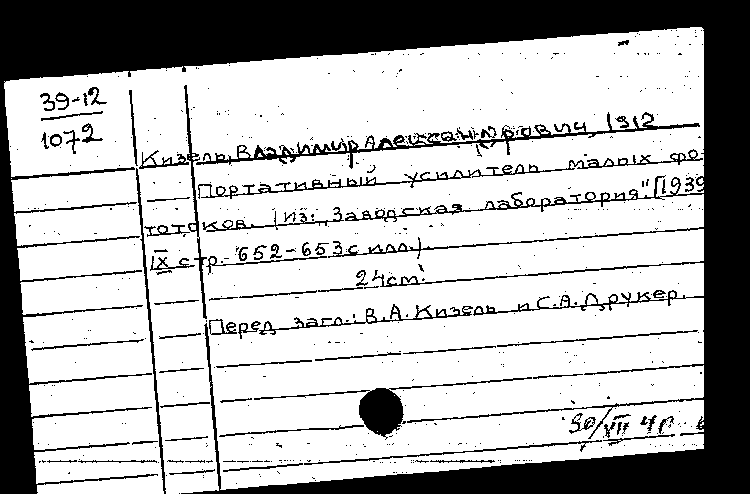 39-12
1072
Кизель, Владимир Александрович, 1912
Портативный усилитель малых фо
тотоков. (из: „Заводская лаборатория". [1939
IX стр. 652-653 с илл.).
24cm.
Перед загл.: В.А. Кизель и С.А. Друкер.
30/VII 4